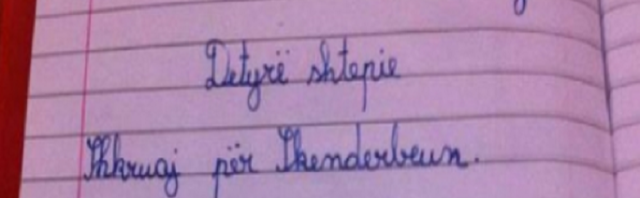 Detyrë shtepie
Shkruaj për Skenderbeun.